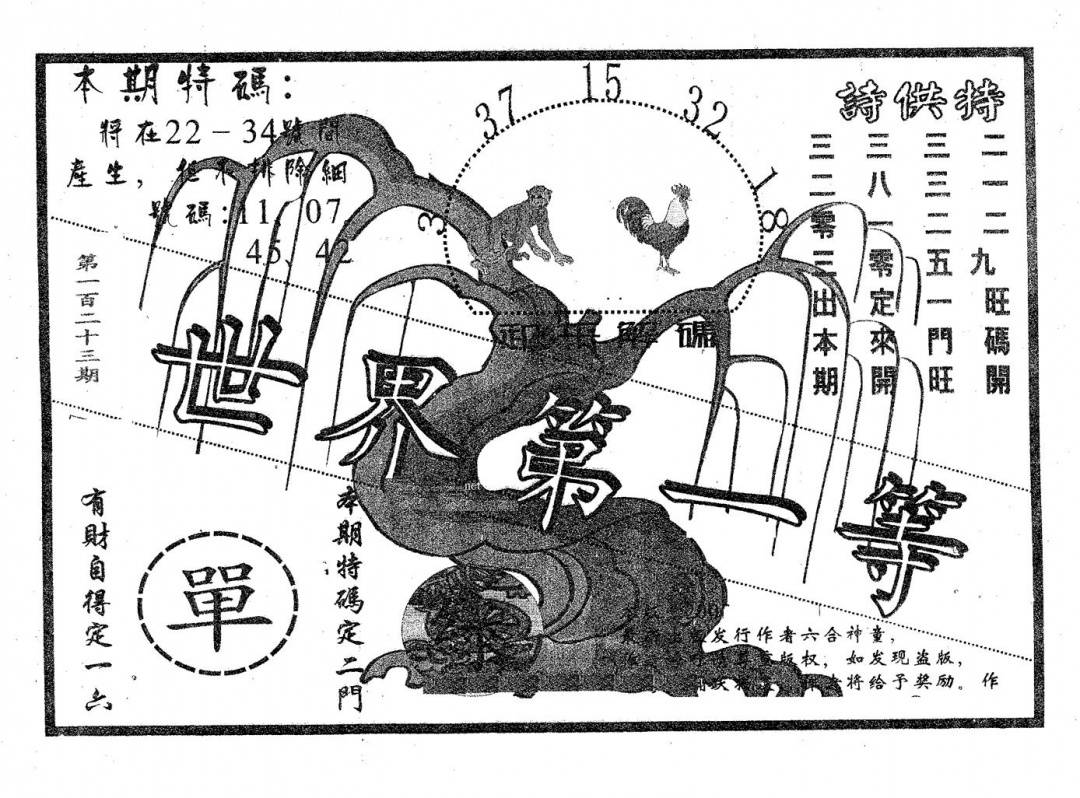 本期特碼：
將在22－34號間
產生，但不排除細
號碼:11、07、
45、42
第一百二十三期
37
15
32
18
特供詩
二一二九旺碼開
三三二五一門旺
三八一零定來開
三二零三出本期
世界第一等
本期特碼定二門
單
有財自得定一六
发行作者六合神童，
版权，如发现盗版，
将给予奖励。作